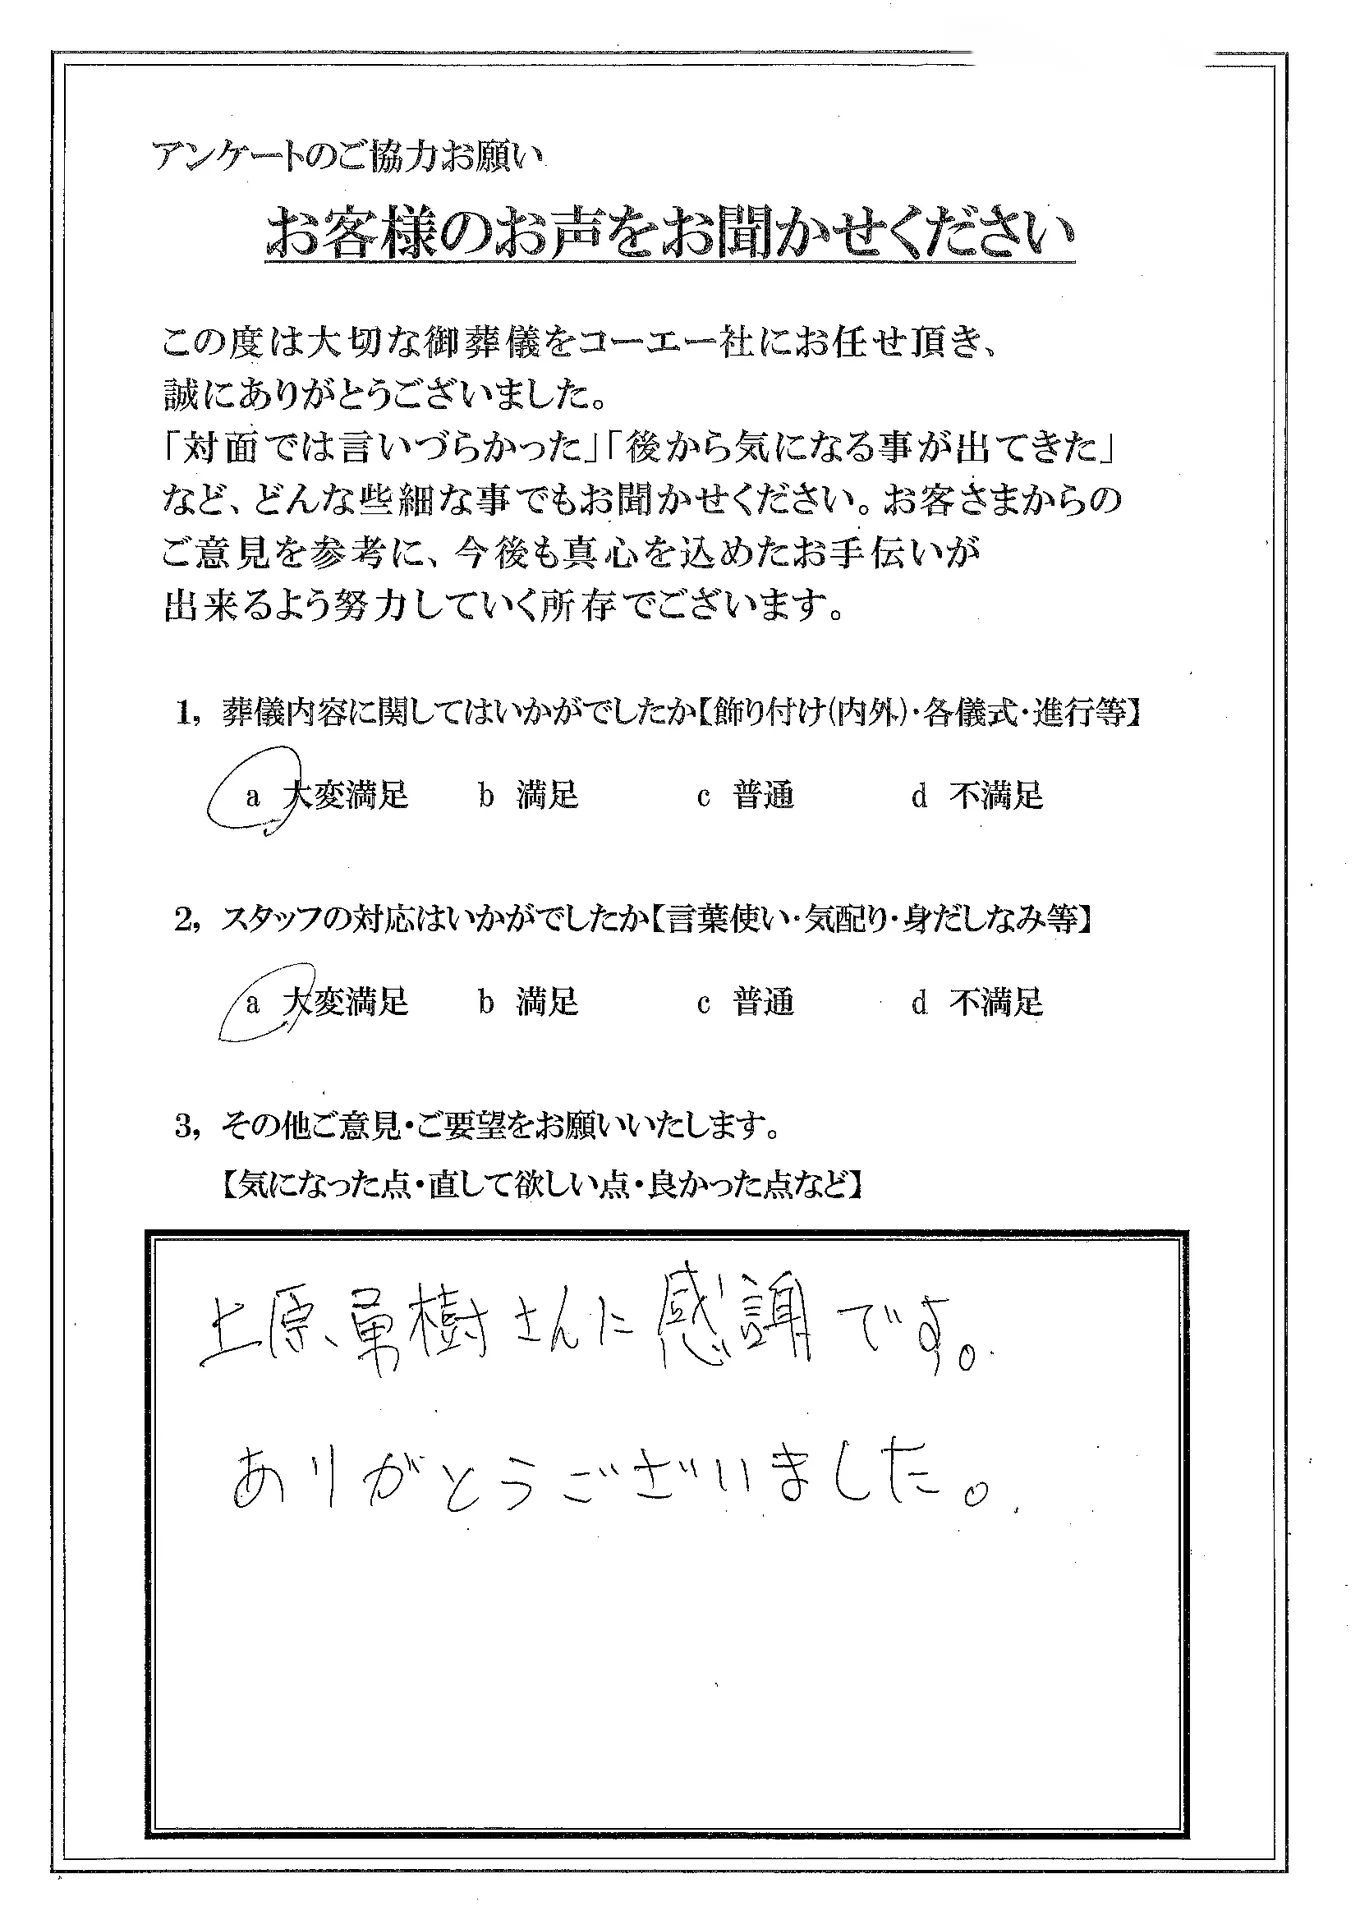 アンケートのご協力お願い
お客様のお声をお聞かせください
この度は大切な御葬儀をコーエー社にお任せ頂き、
誠にありがとうございました。
「対面では言いづらかった」「後から気になる事が出てきた」
など、どんな些細な事でもお聞かせください。お客さまからの
ご意見を参考に、今後も真心を込めたお手伝いが
出来るよう努力していく所存でございます。
1, 葬儀内容に関してはいかがでしたか【飾り付け(内外)・各儀式・進行等】
a 大変満足 b 満足 c 普通 d 不満足
2, スタッフの対応はいかがでしたか【言葉使い・気配り・身だしなみ等】
a 大変満足 b 満足 c 普通 d 不満足
3, その他ご意見・ご要望をお願いいたします。
【気になった点・直して欲しい点・良かった点など】
上原、勇樹さんに感謝です。
ありがとうございました。